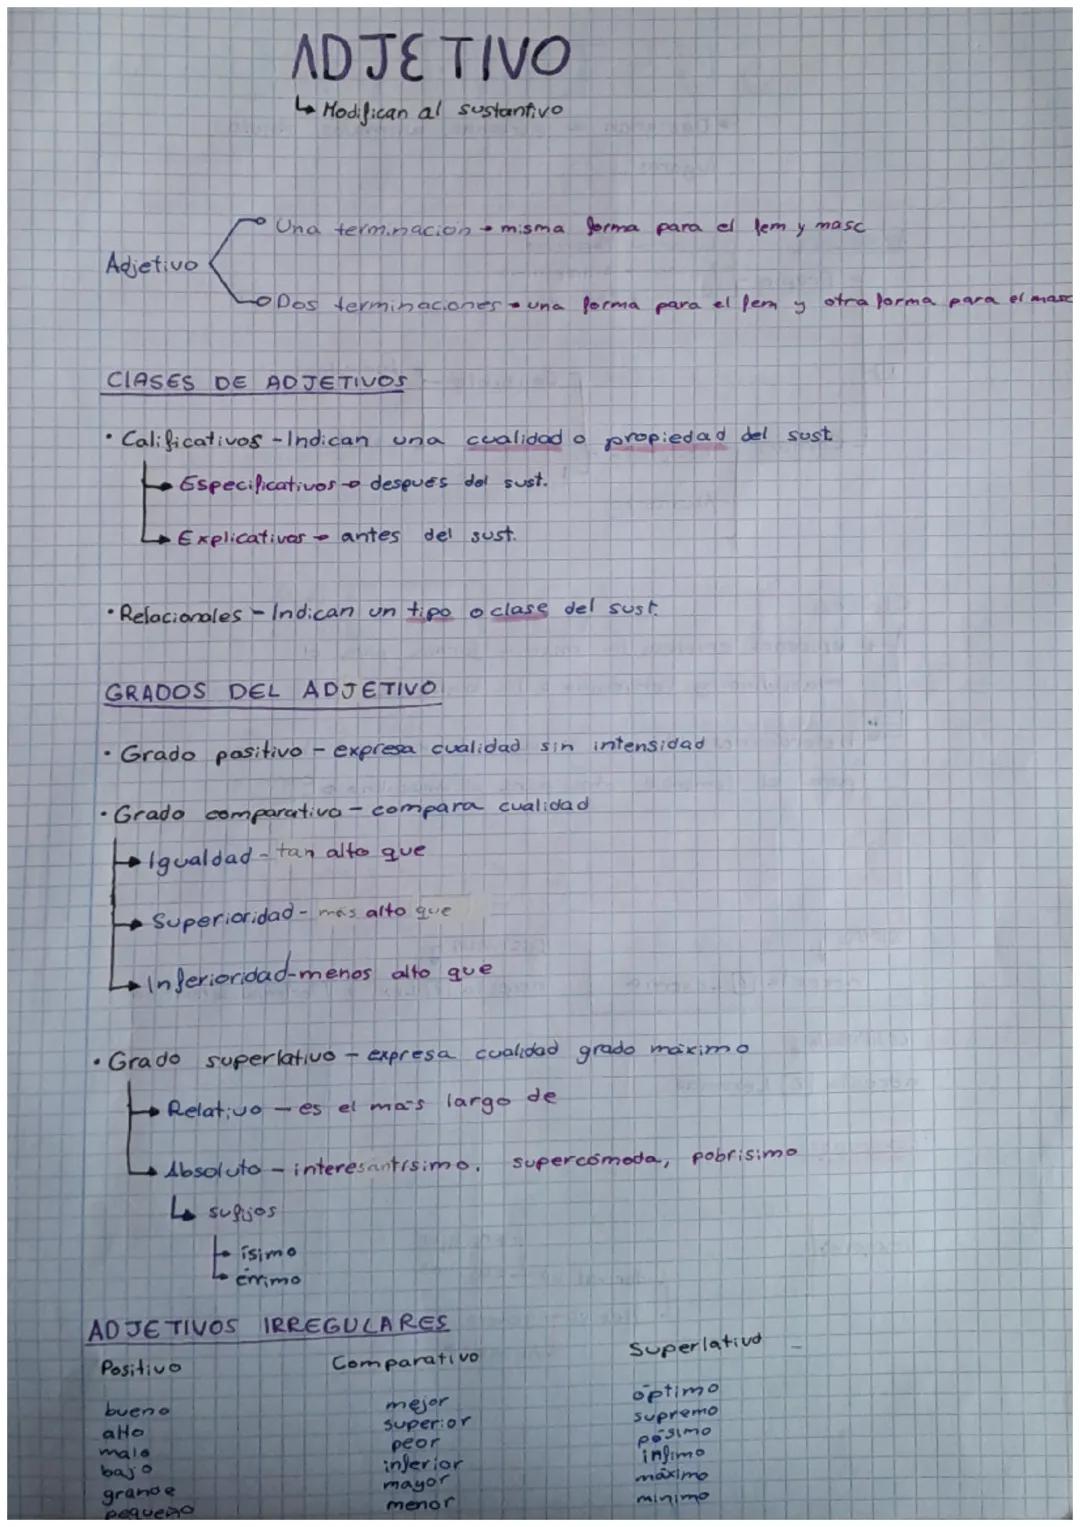 ADJETIVO
↳ Modifican al sustantivo
Una terminación → misma forma para el fem y masc
Adjetivo
Dos terminaciones → una forma para el fem y otra forma para el masc
ClASES DE ADJETIVOS
• Calificativos - Indican una cualidad o propiedad del sust
→ Especificativos → después del sust.
→ Explicativos → antes del sust.
• Relacionales - Indican un tipo o clase del sust.
GRADOS DEL ADJETIVO
• Grado positivo - expresa cualidad sin intensidad
• Grado comparativo - compara cualidad
→ Igualdad - tan alto que
→ Superioridad - más alto que
→ Inferioridad - menos alto que
• Grado superlativo - expresa cualidad grado máximo
→ Relativo - es el más largo de
→ Absoluto - interesantísimo, supercómoda, pobrisimo
↳ sufijos
→ ísimo
→ érrimo
ADJETIVOS IRREGULARES
Positivo Comparativo Superlativo
bueno mejor óptimo
alto superior supremo
malo peor pésimo
bajo inferior ínfimo
grande mayor máximo
pequeño menor minimo